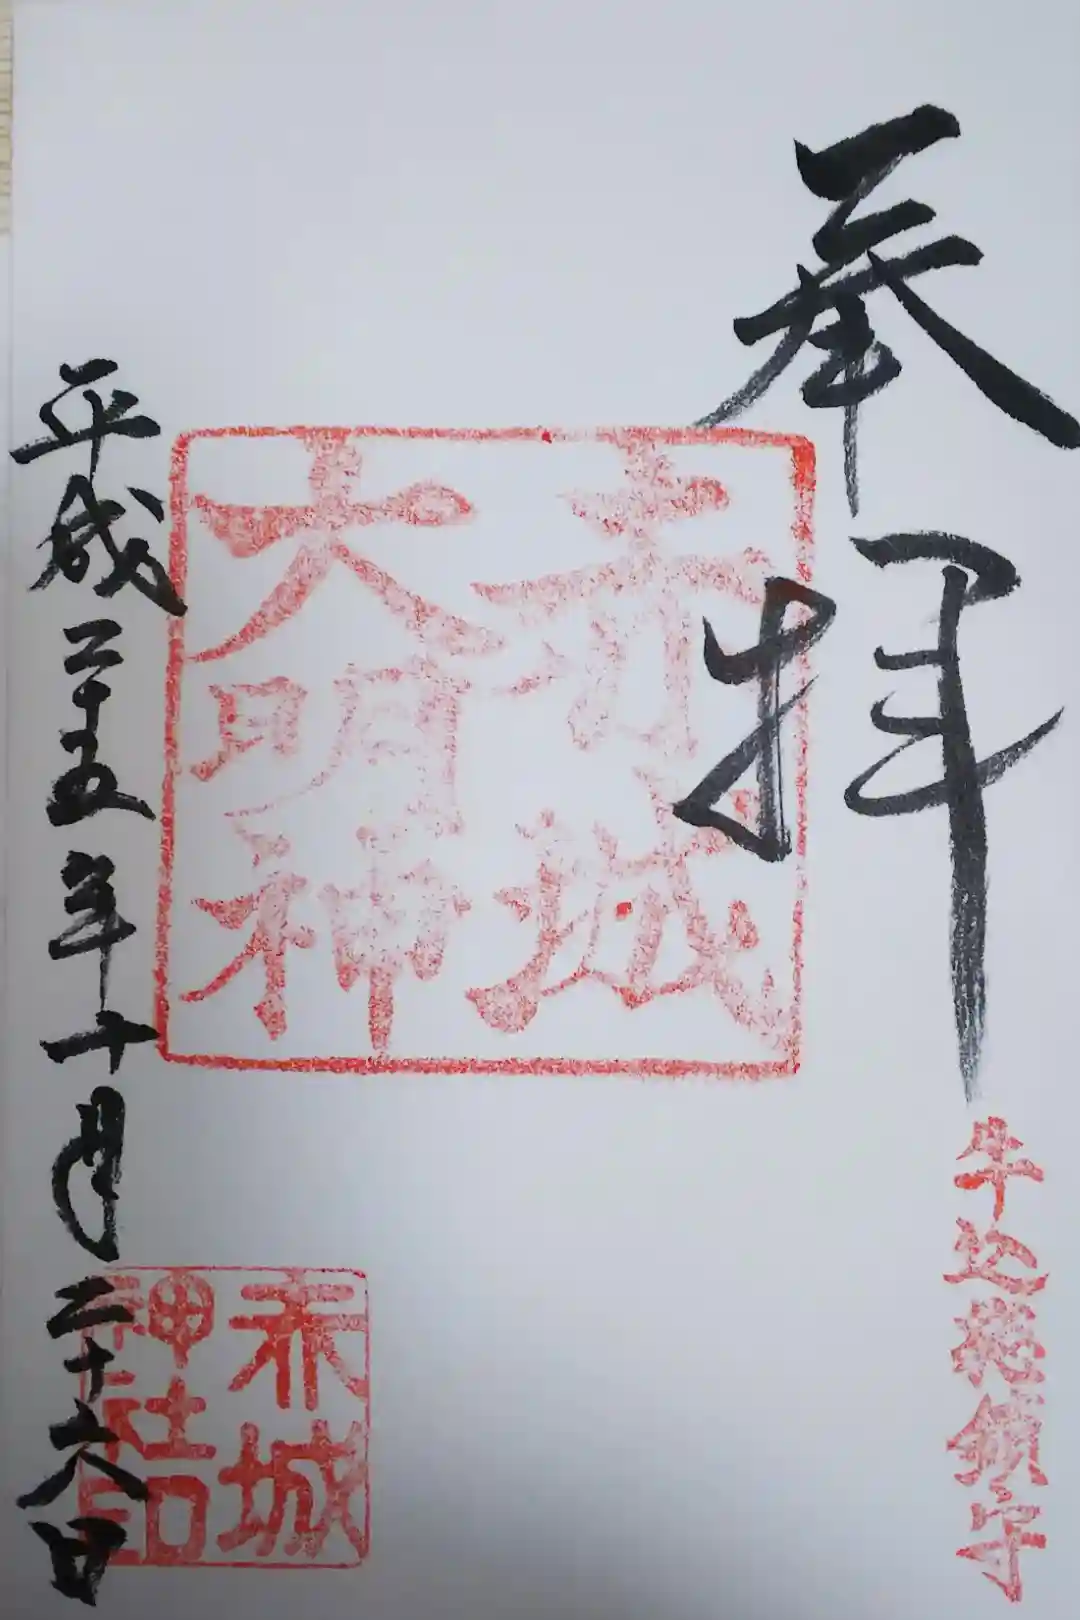 奉拝
牛込総鎮守
赤城
大明神
赤城
神社印
平成二十五年十月二十六日